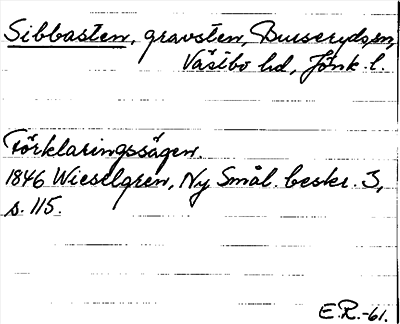 Sibbasten, gravsten, Burserydssn,
Västbo hd, Jönk. l.
Förklaringssägen.
1846 Wieselgren, Ny Smål. beskr. 3,
s. 115.
E.R.-61.